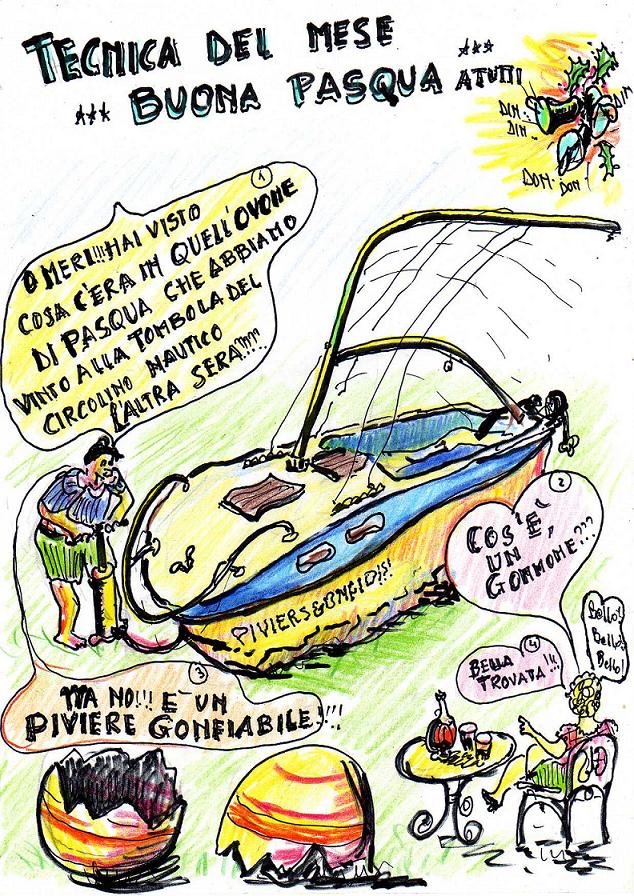 TECNICA DEL MESE ***
*** BUONA PASQUA A TUTTI
DIN
DIN
DIN
DON DON
1
O MERI!!! HAI VISTO
COSA C'ERA IN QUELL'OVONE
DI PASQUA CHE ABBIAMO
VINTO ALLA TOMBOLA DEL
CIRCOLINO NAUTICO
L'ALTRA SERA????
2
COS'È,
UN
GOMMONE???
PIVIERS&ONGIO!!!
3
MA NO!!! È UN
PIVIERE GONFIABILE!!!!
4
BELLA
TROVATA!!!
Bello!
Bello!
Bello!